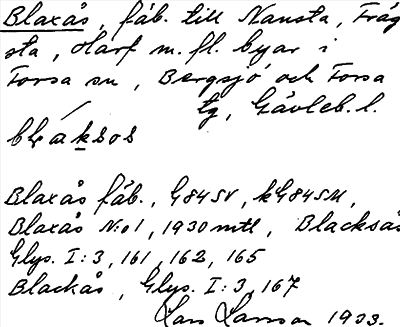 Blaxås, fäb. till Nansta, Fräg
sta, Harf m. fl. byar i
Forsa sn, Bergsjö och Forsa
tg, Gävleb. l.
Blaxås fäb., G84SV, kG84SM,
Blaxås N:o 1, 1930 mtl, Blacksås
Glys. I: 3, 161, 162, 165
Blackås, Glys. I: 3, 167
Lars Larsson 1933.